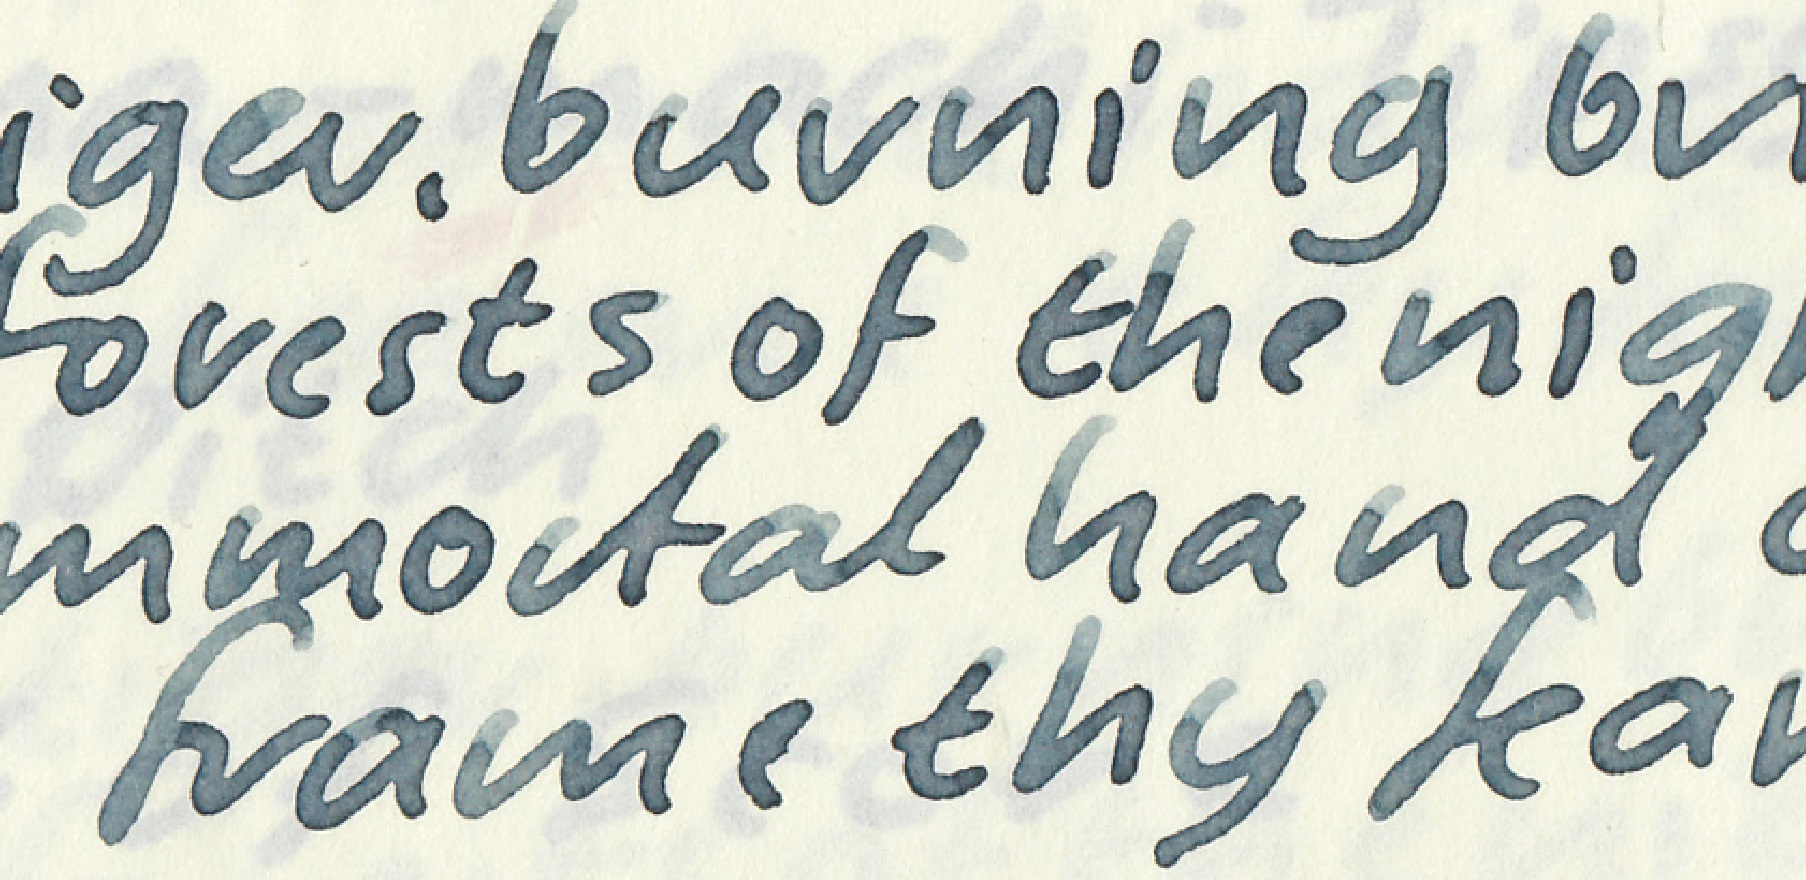 iger. burning br
forests of the nigh
mmortal hand o
frame thy fear